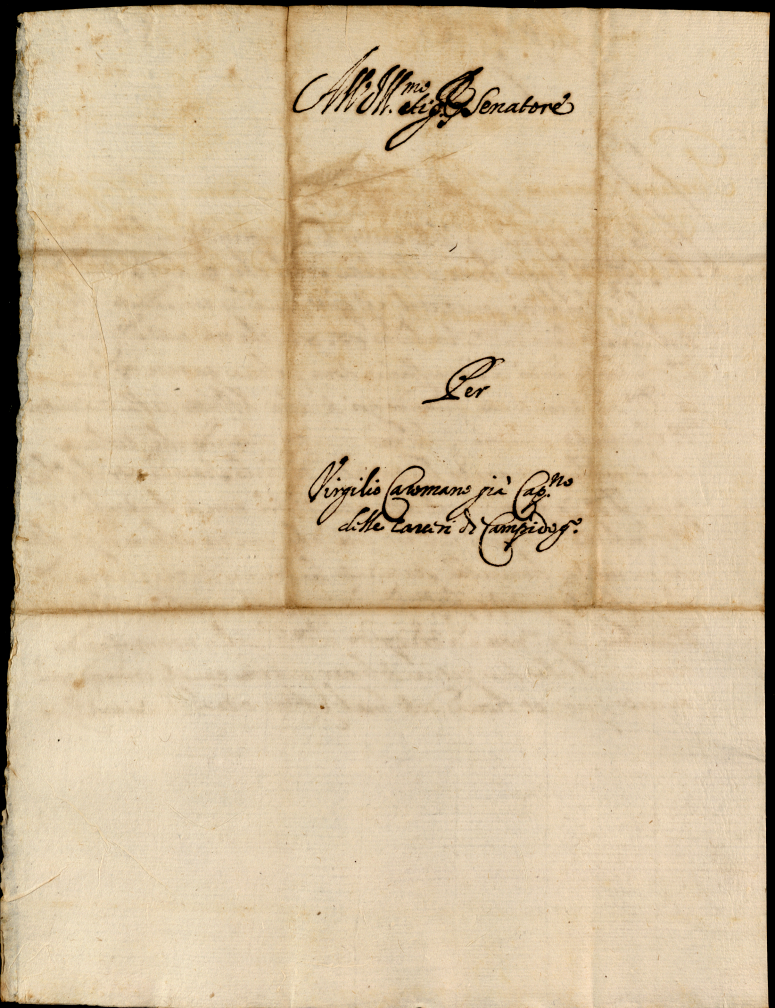 All' Ill.mo et Sig.r Senatore
Per
Virgilio già Cap.no
delle Carceri di Campidog.o